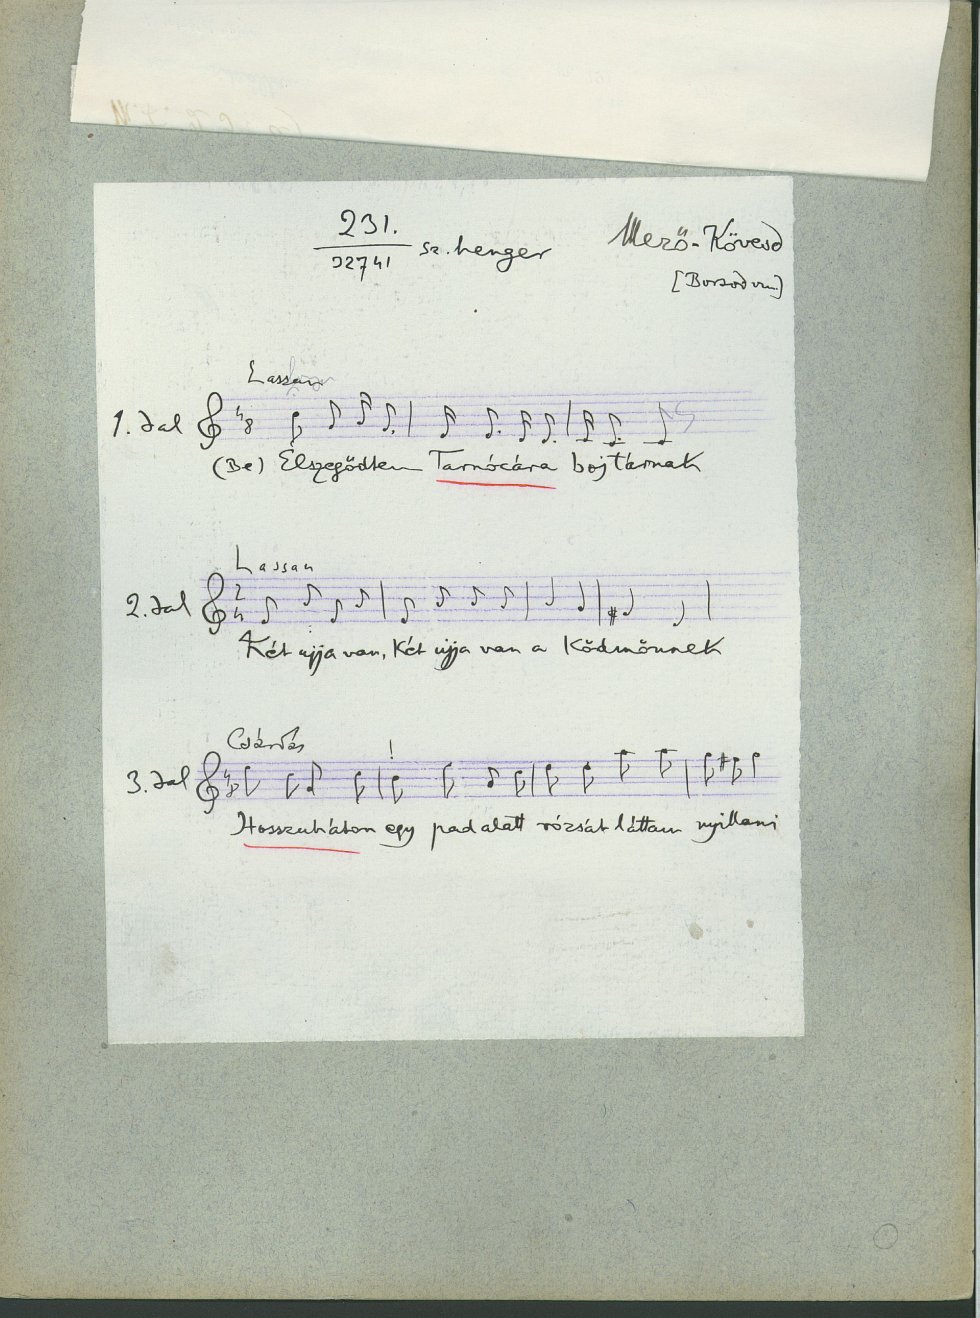 231.
32741 sz. henger
Mező-Kövesd
[Borsod vm.]
Lassan
1. dal 4 8
(Be) Élszegődtem Tarnócára bojtárnak
Lassan
2. dal 2 4
Két ujja van, Két ujja van a Ködmönnek
Csárdás
!
3. dal 4 8
Hosszuháton egy pad alatt rózsát láttam nyillani